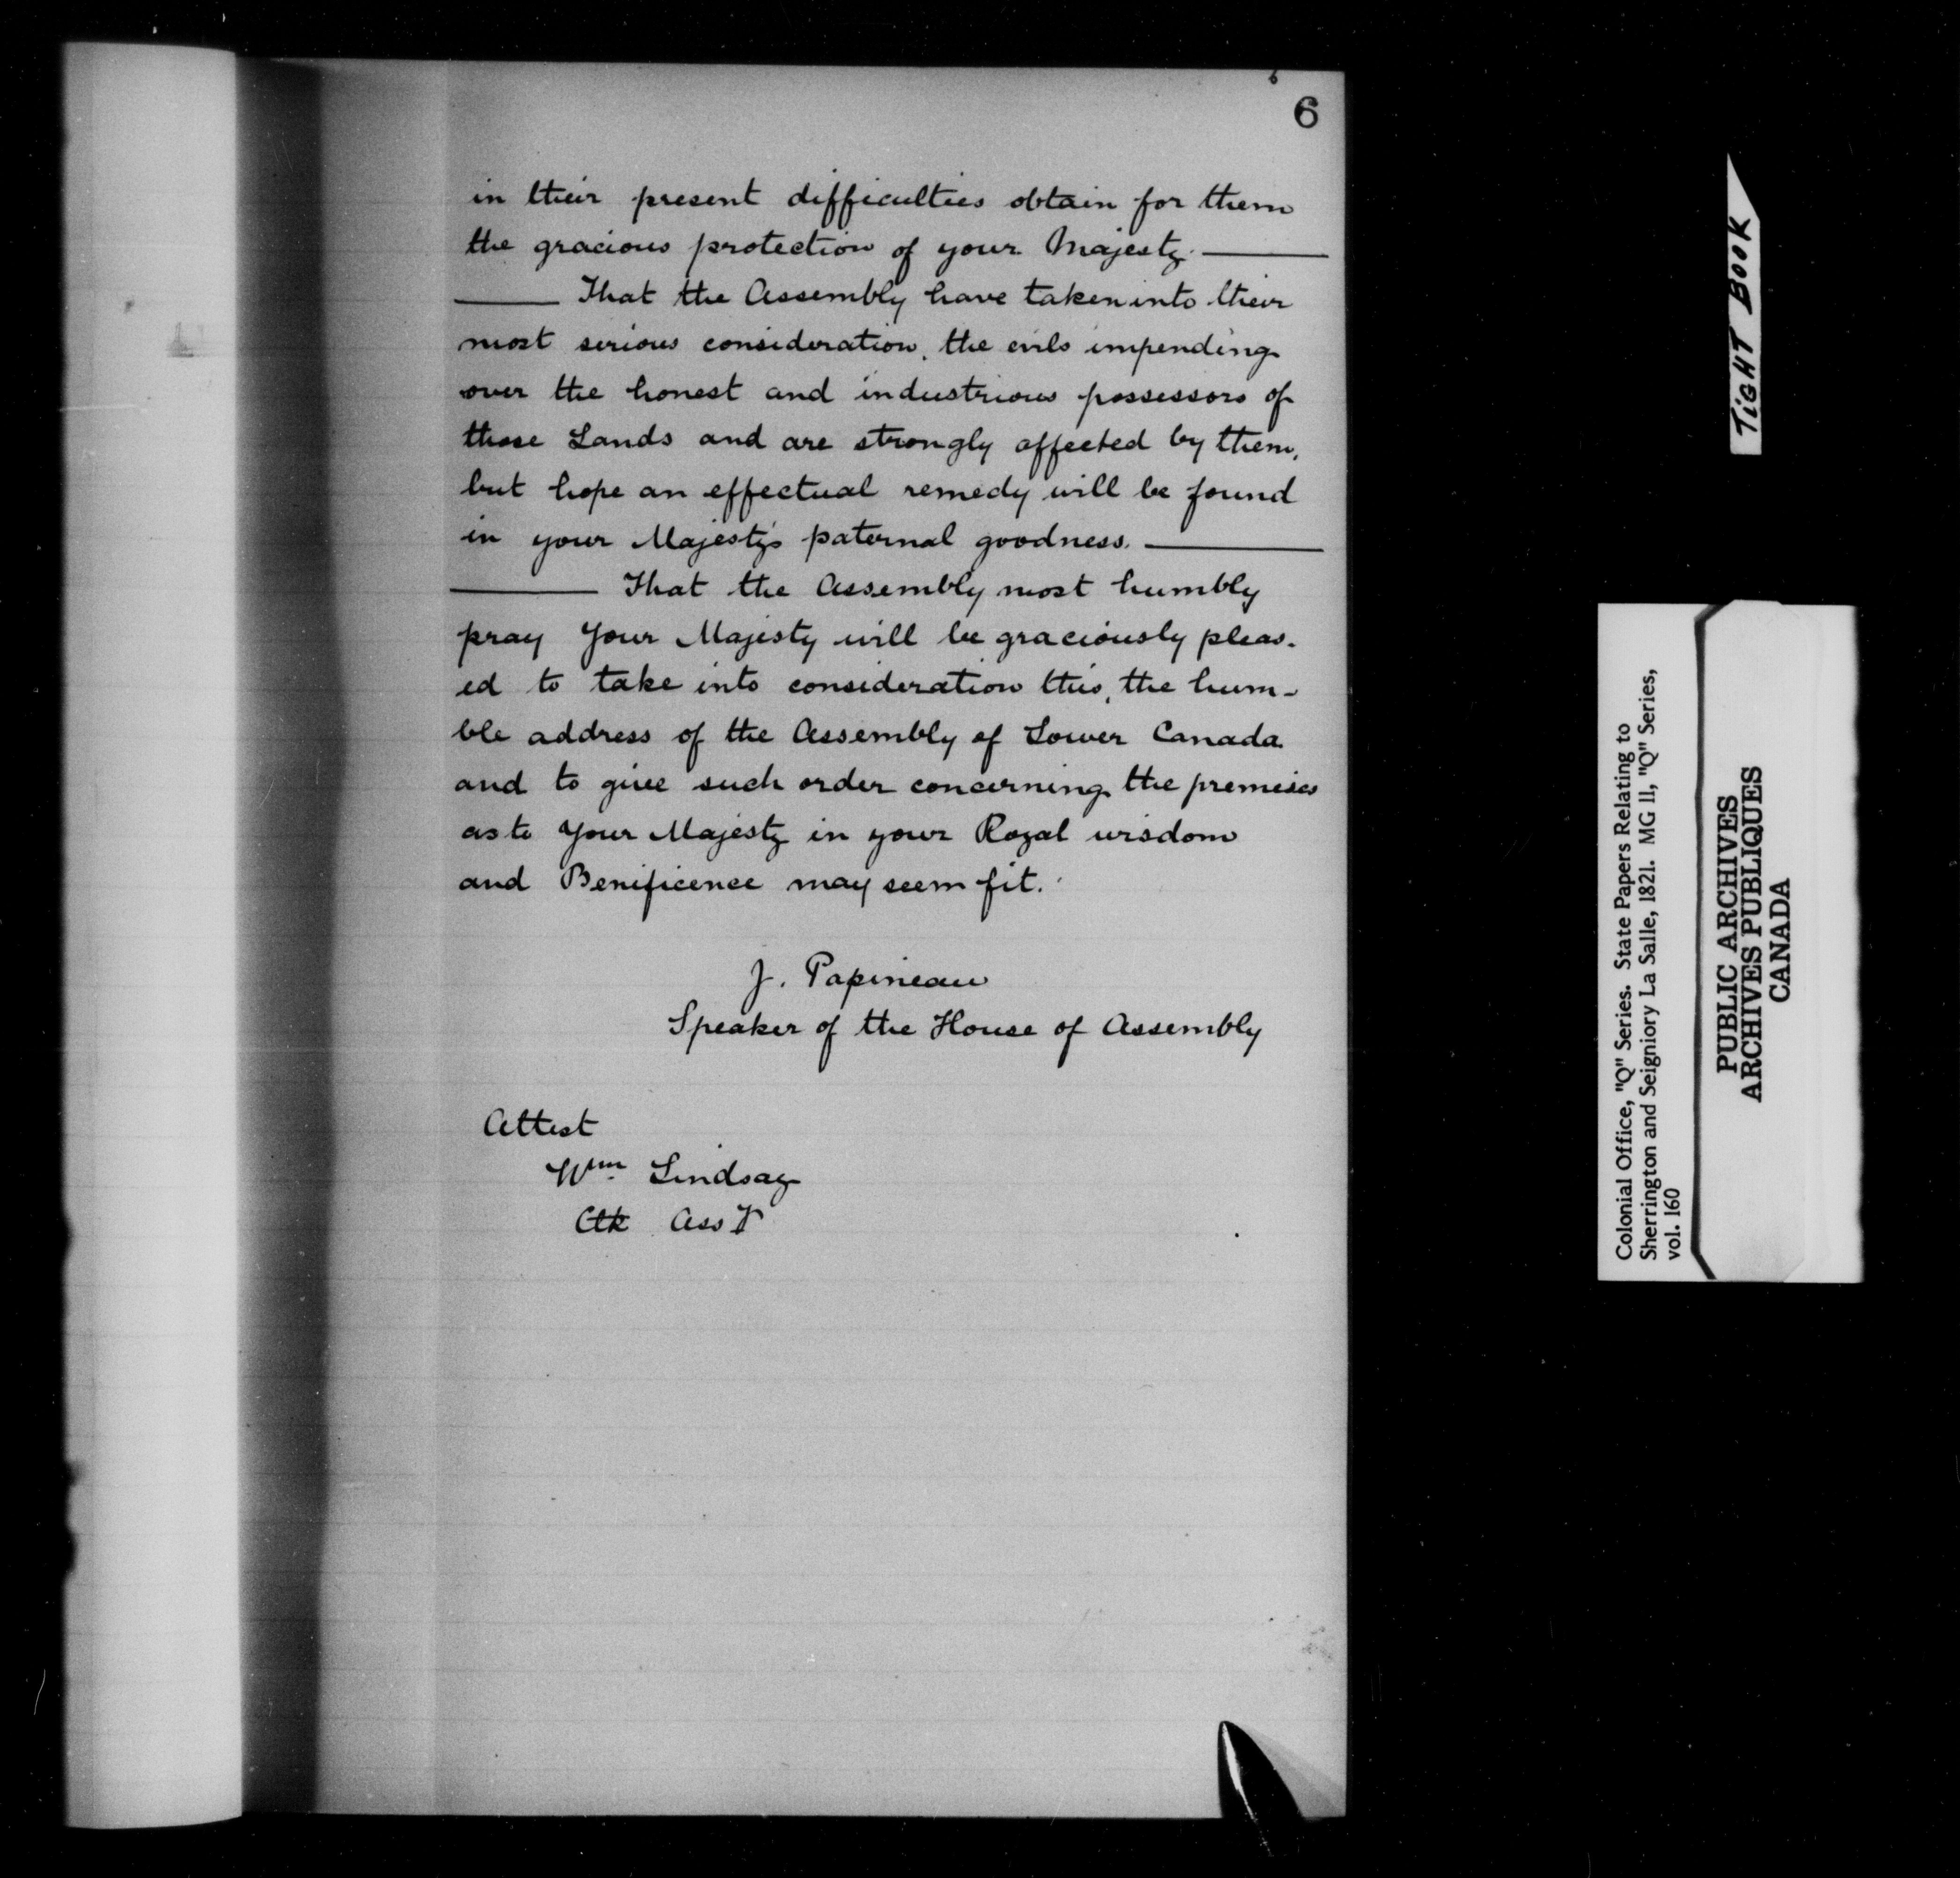 6
in their present difficulties obtain for them
the gracious protection of your Majesty.
That the Assembly have taken into their
most serious consideration, the evils impending
over the honest and industrious possessors of
those Lands and are strongly affected by them,
but hope an effectual remedy will be found
in your Majesty's paternal goodness.
That the Assembly most humbly
pray Your Majesty will be graciously pleas-
ed to take into consideration this, the hum-
ble address of the Assembly of Lower Canada
and to give such order concerning the premises
as to Your Majesty in your Royal wisdom
and Benificence may seem fit.
J. Papineau
Speaker of the House of Assembly
Attest
Wm. Lindsay
Clk Ass
TIGHT BOOK
Colonial Office, "Q" Series. State Papers Relating to
Sherrington and Seigniory La Salle, 1821. MG 11, "Q" Series,
vol. 160
PUBLIC ARCHIVES
ARCHIVES PUBLIQUES
CANADA